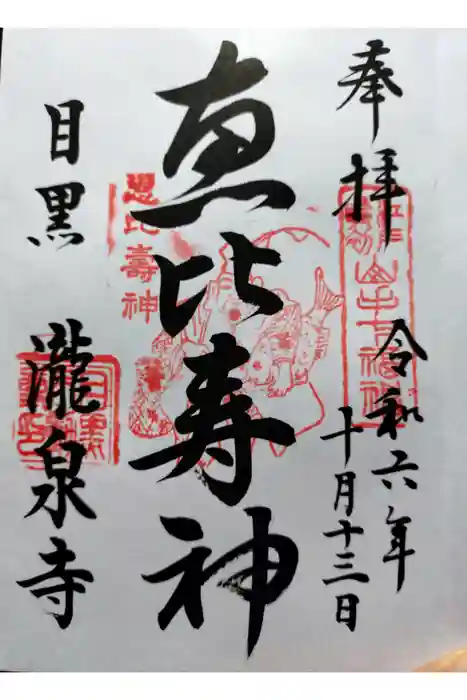 奉拝
令和六年
十月十三日
恵比寿神
恵比壽神
目黒 瀧泉寺